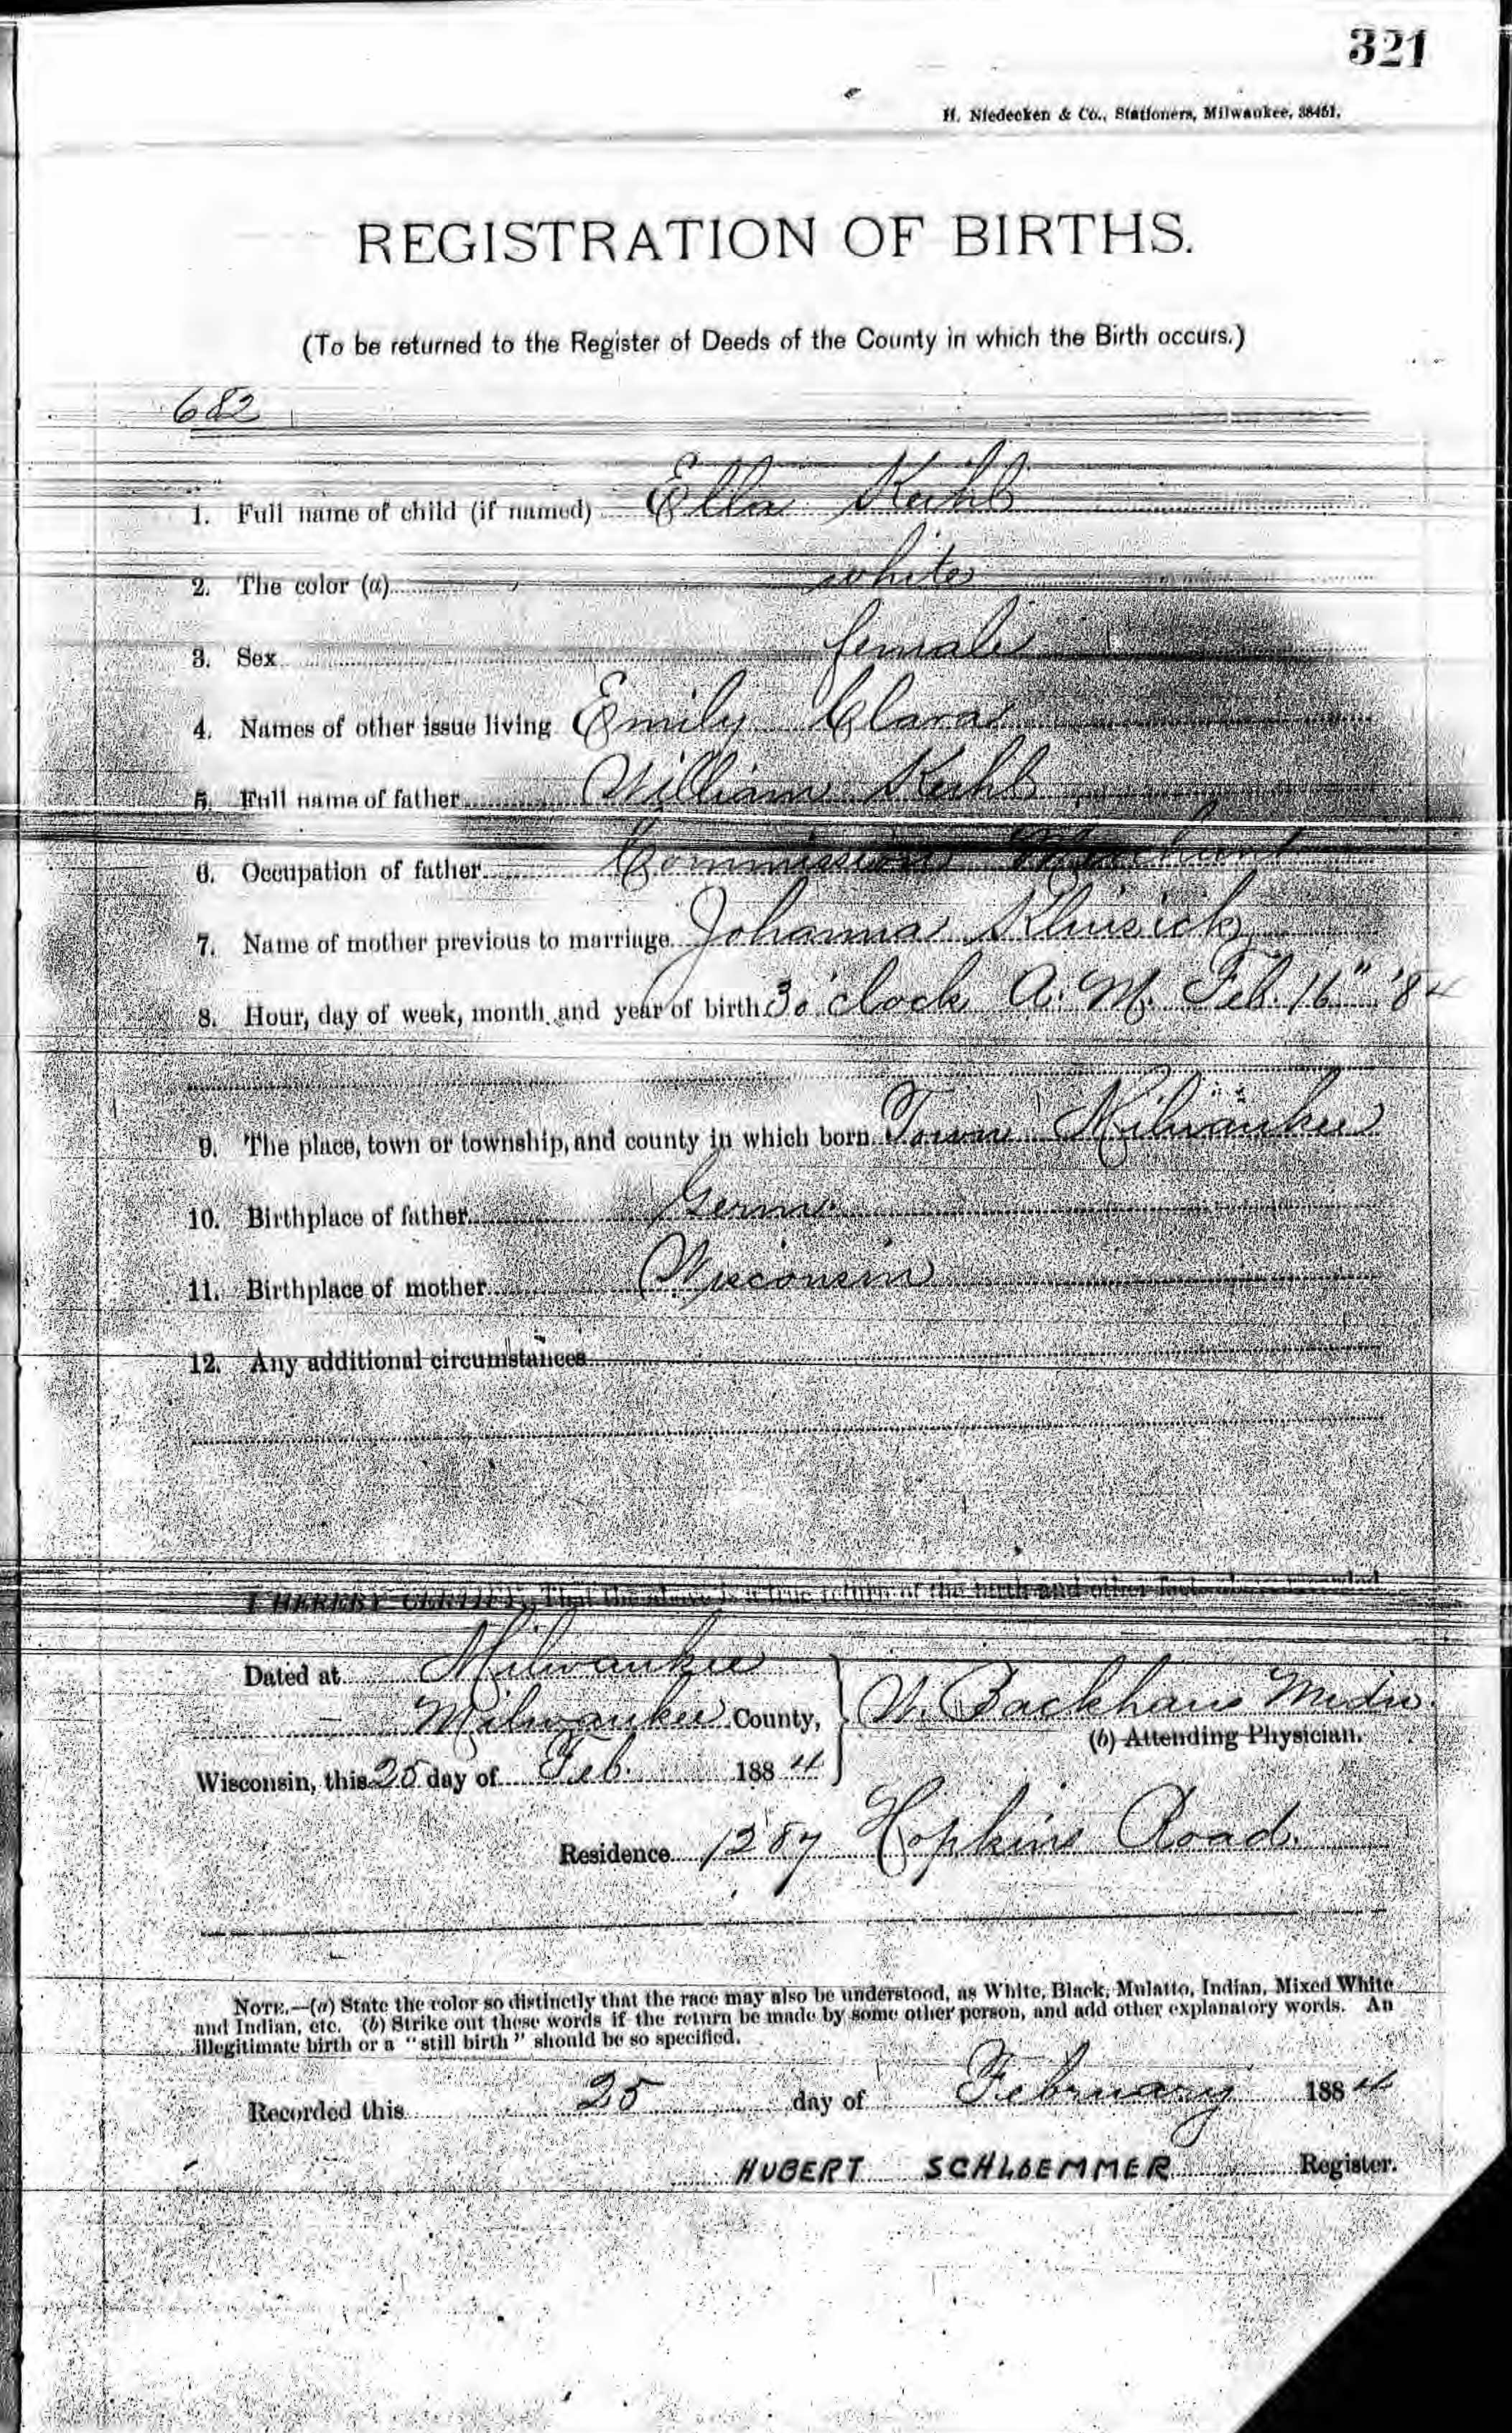 321
H. Niedecken & Co., Stationers, Milwaukee, 38451.
REGISTRATION OF BIRTHS.
(To be returned to the Register of Deeds of the County in which the Birth occurs.)
682
1. Full name of child (if named) Ella Kuhl
2. The color (a) white
3. Sex female
4. Names of other issue living Emily Clara
5. Full name of father William Kuhl
6. Occupation of father Commission Merchant
7. Name of mother previous to marriage Johanna
8. Hour, day of week, month and year of birth 3 o'clock A. M. Feb. 16" '84
9. The place, town or township, and county in which born Town Milwaukee
10. Birthplace of father Germ.
11. Birthplace of mother Wisconsin
12. Any additional circumstances
I HEREBY CERTIFY, That the above is a true return of the birth and other facts
Dated at Milwaukee
Milwaukee County,
W. Backhaus
(b) Attending Physician.
Wisconsin, this 25 day of Feb. 1884
Residence 1287 Hopkins Road.
NOTE.—(a) State the color so distinctly that the race may also be understood, as White, Black, Mulatto, Indian, Mixed White
and Indian, etc. (b) Strike out these words if the return be made by some other person, and add other explanatory words. An
illegitimate birth or a "still birth" should be so specified.
Recorded this 25 day of February 1884
HUBERT SCHLOEMMER Register.